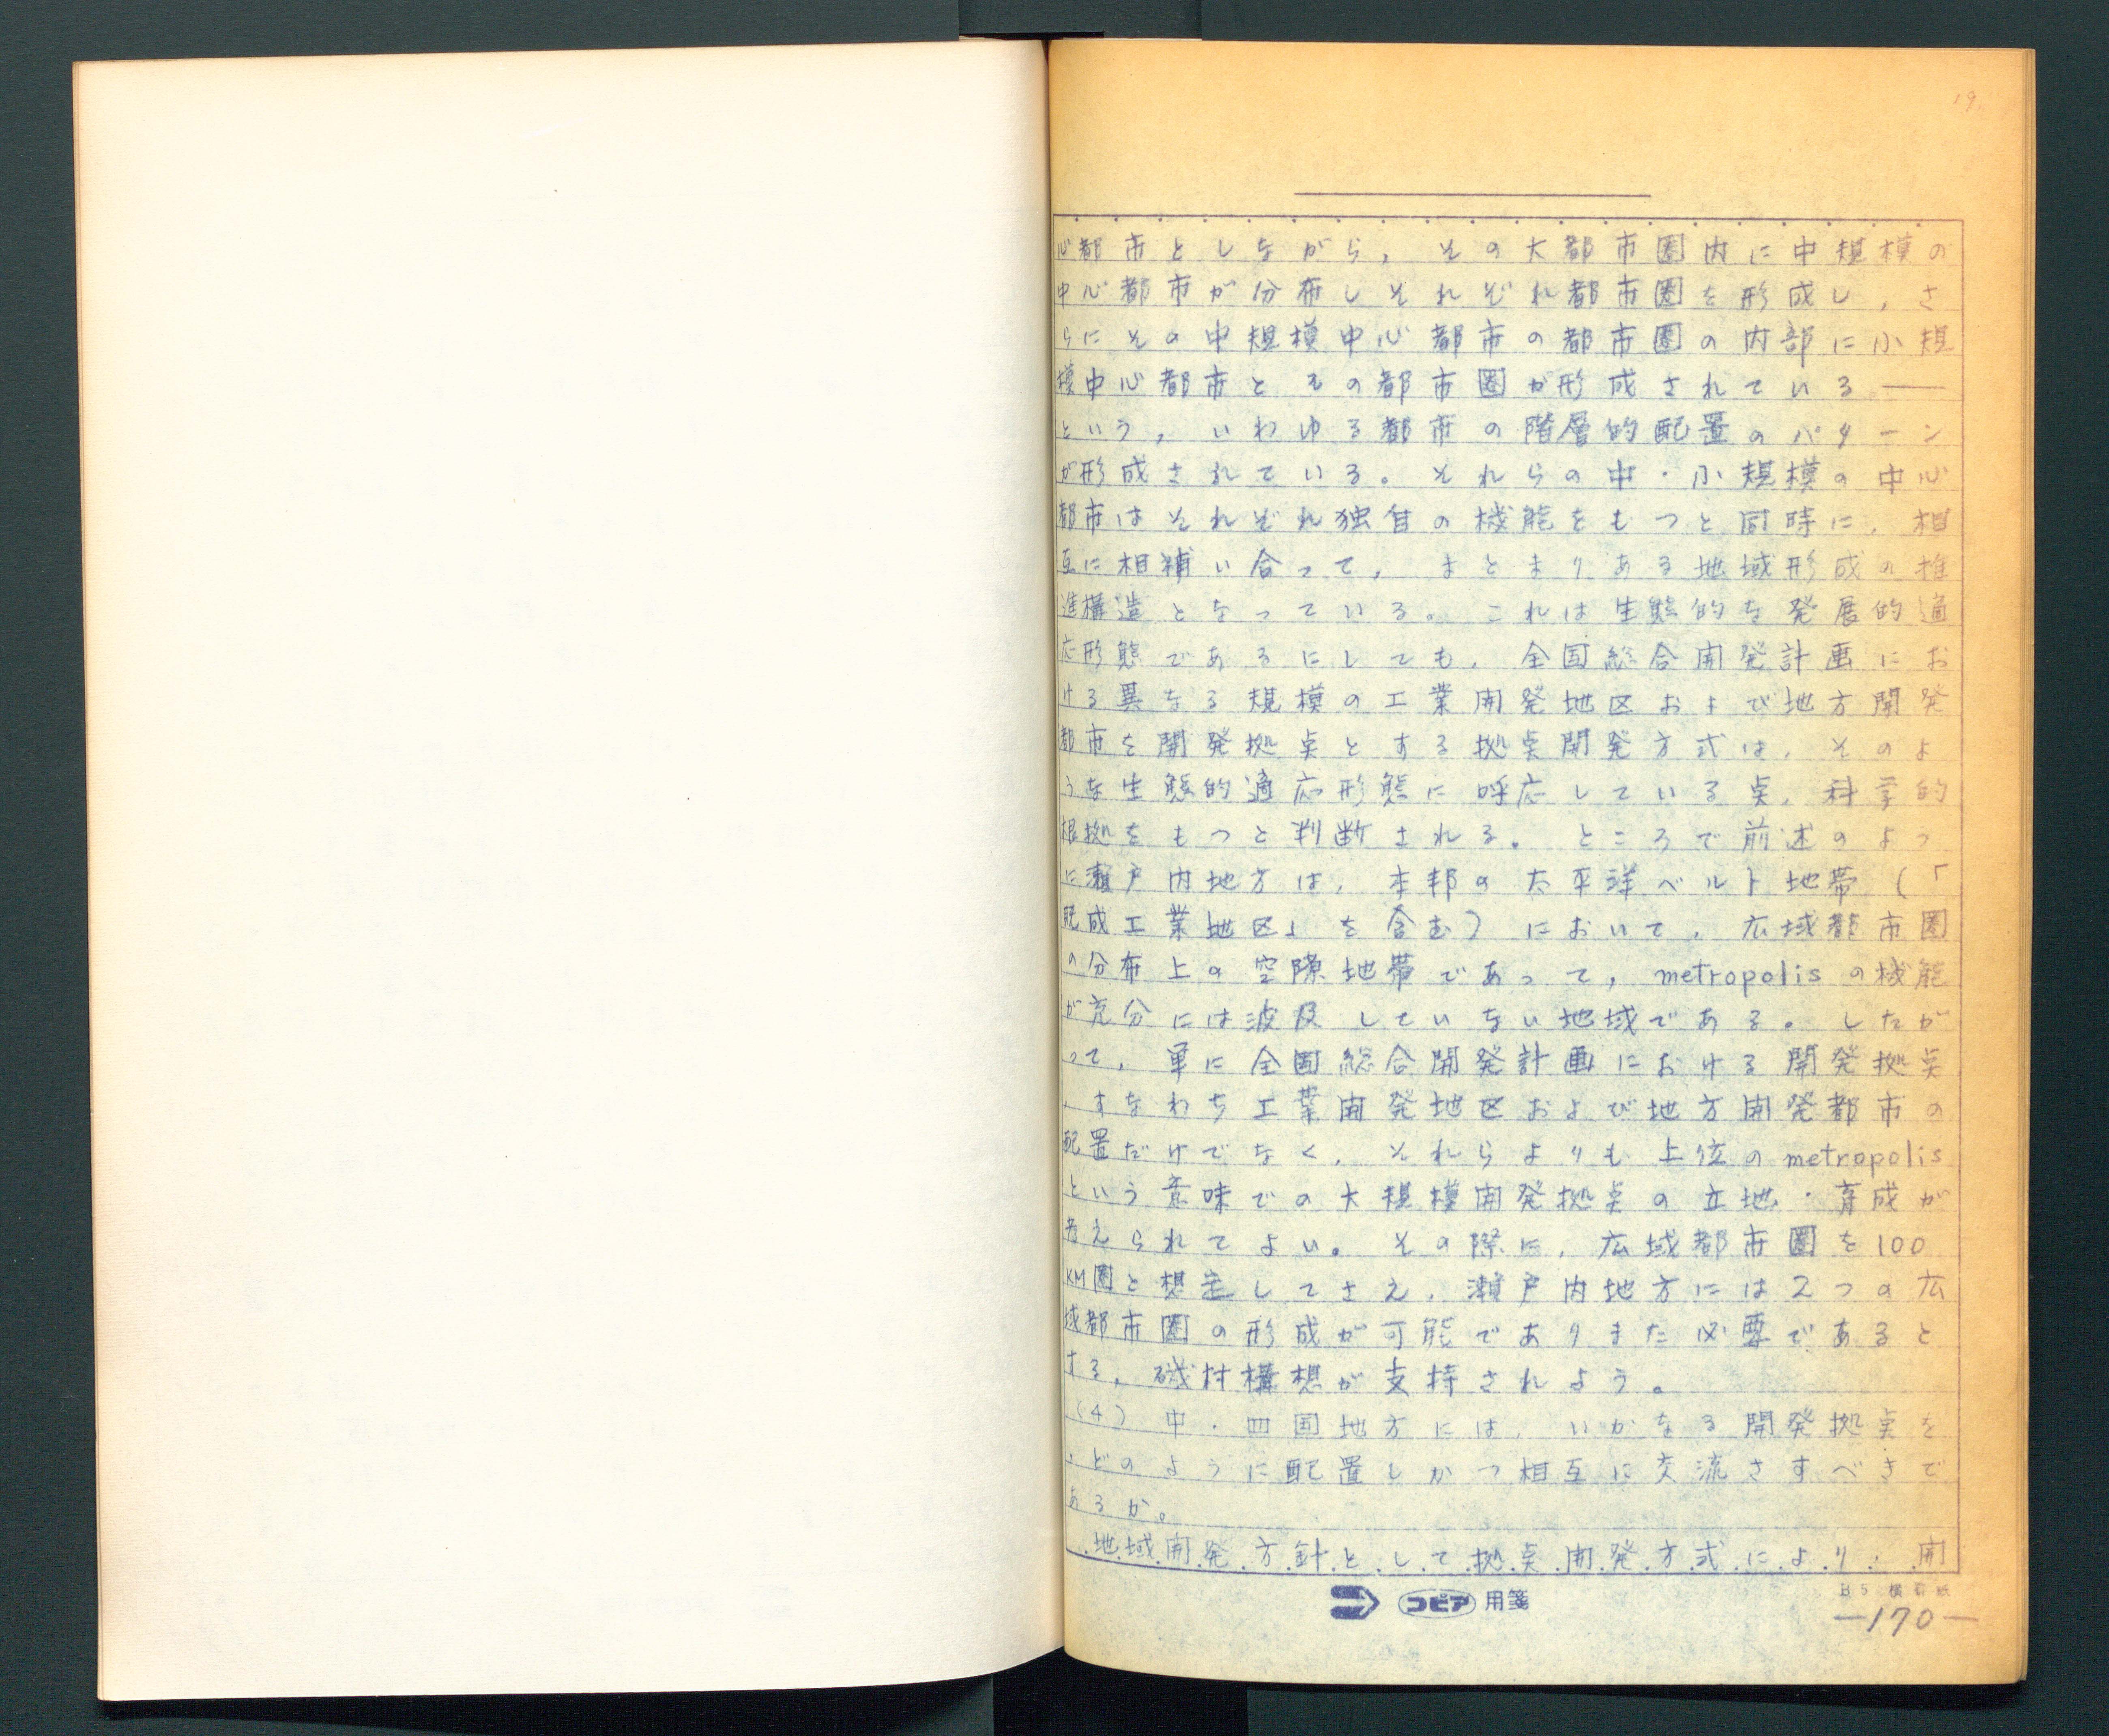 心都市としながら，その大都市圏内に中規模の
中心都市が分布しそれぞれ都市圏を形成し，さ
らにその中規模中心都市の都市圏の内部に小規
模中心都市とその都市圏が形成されている——
という，いわゆる都市の階層的配置のパターン
が形成されている。それらの中・小規模の中心
都市はそれぞれ独自の機能をもつと同時に，相
互に相補い合って，まとまりある地域形成の推
進構造となっている。これは生態的な発展的適
応形態であるにしても，全国総合開発計画にお
ける異なる規模の工業開発地区および地方開発
都市を開発拠点とする拠点開発方式は，そのよ
うな生態的適応形態に呼応している点，科学的
根拠をもつと判断される。ところで前述のよう
に瀬戸内地方は，本邦の太平洋ベルト地帯（「
既成工業地区」を含む）において，広域都市圏
の分布上の空隙地帯であって，metropolisの機能
が充分には波及していない地域である。したが
って，単に全国総合開発計画における開発拠点
，すなわち工業開発地区および地方開発都市の
配置だけでなく，それらよりも上位のmetropolis
という意味での大規模開発拠点の立地・育成が
考えられてよい。その際に，広域都市圏を100
KM圏と想定してさえ，瀬戸内地方には2つの広
域都市圏の形成が可能でありまた必要であると
する，磯村構想が支持されよう。
(4) 中・四国地方には，いかなる開発拠点を
，どのように配置しかつ相互に交流さすべきで
あるか。
地域開発方針として拠点開発方式により，開
コピア 用箋
B5 横罫紙
—170—